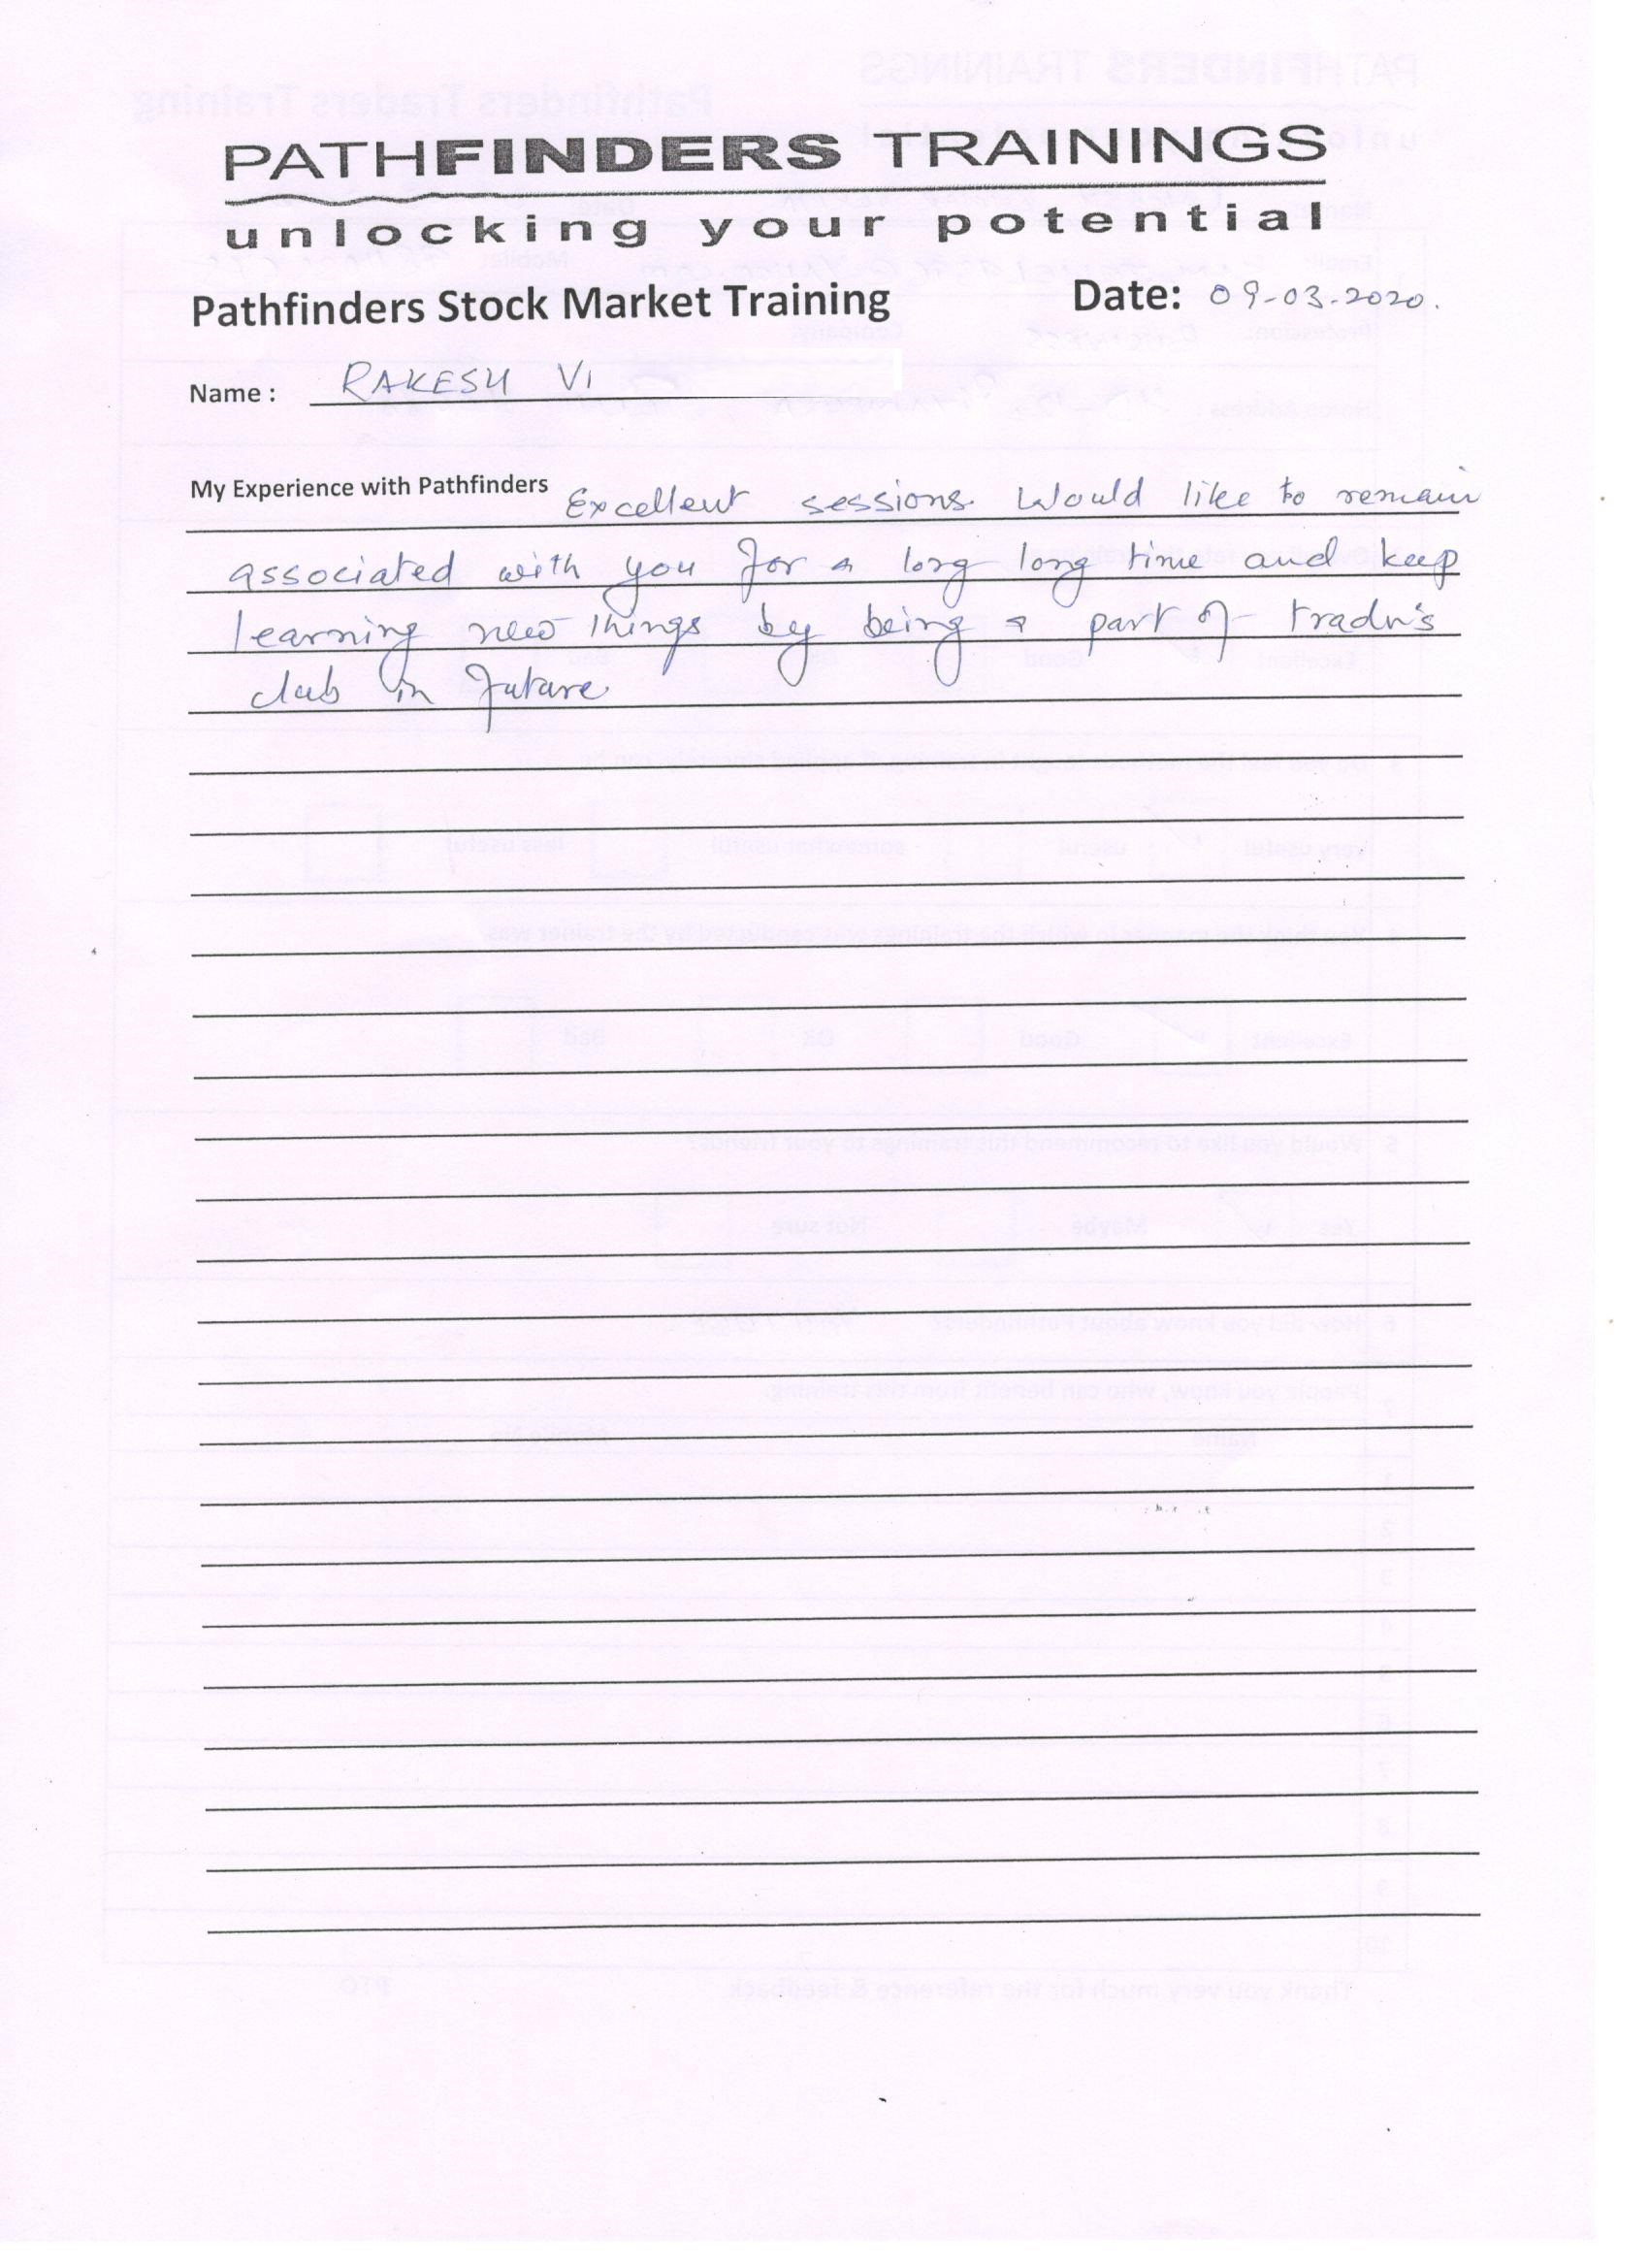 PATHFINDERS TRAININGS
unlocking your potential
Pathfinders Stock Market Training Date: 09-03-2020.
Name : RAKESH VI
My Experience with Pathfinders Excellent sessions. Would like to remain
associated with you for a long long time and keep
learning new things by being a part of trader's
club in future